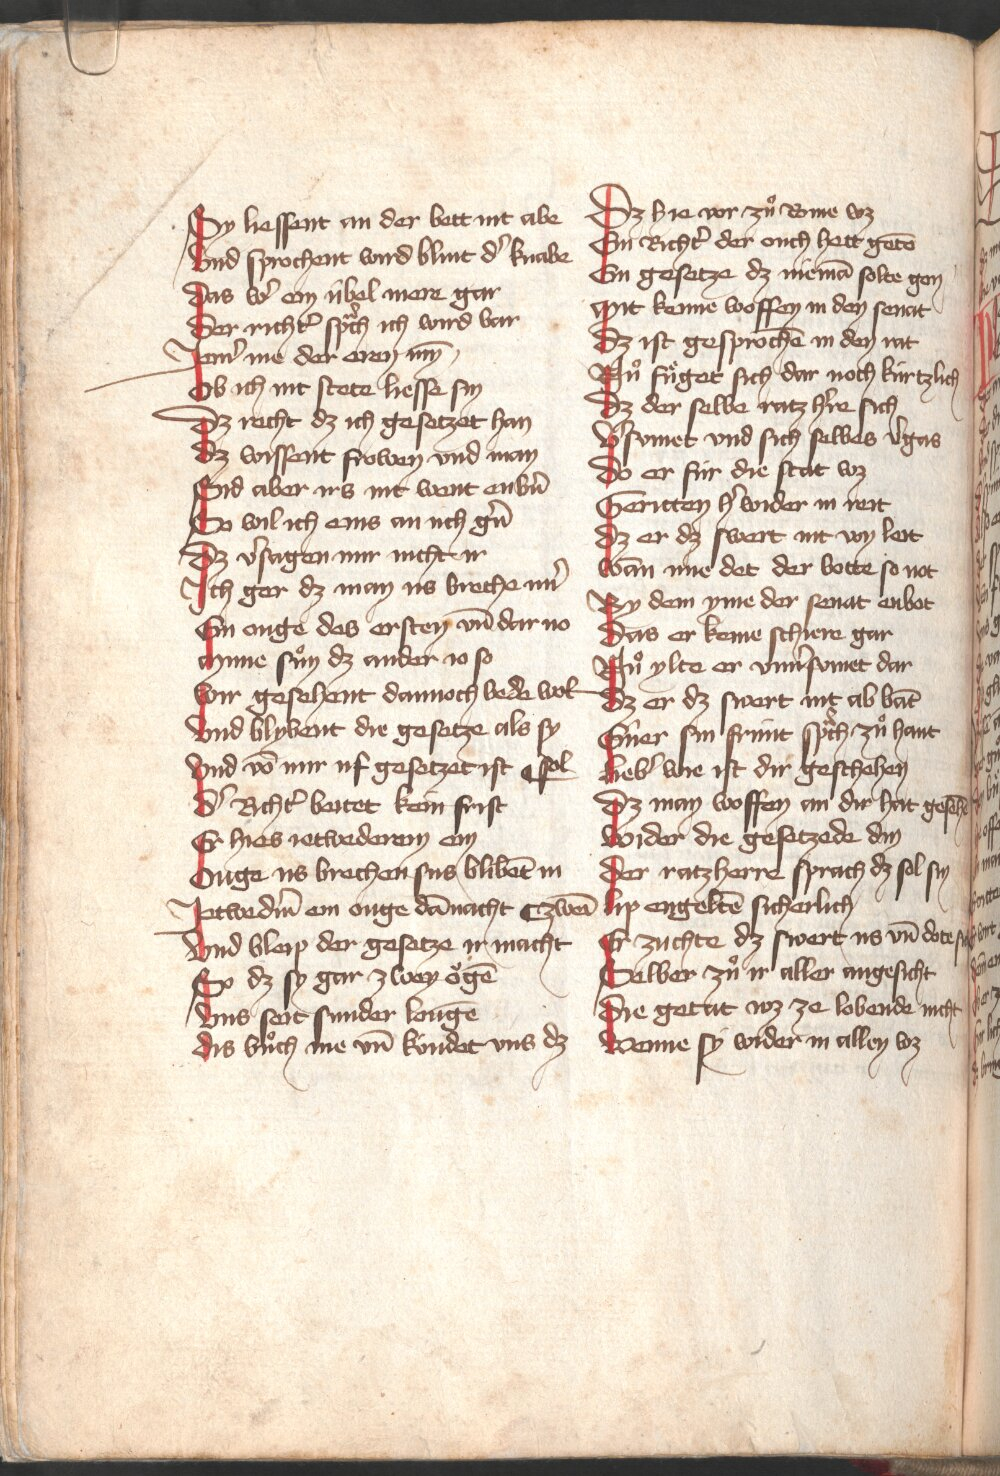 Sy liessent an der bett nit abe
Vnd sprochent wurd blint d' knabe
Das wer ein übel mere gar
Der richt' sprach ich wird bar
Iemer me der eren myn
Ob ich nit stete liesse sin
Dz recht dz ich gesetzet han
Dz wissent frowen vnd man
Sid aber irs nit went enbern
So wil ich eins an üch gern
Dz versagen mir nicht ir
Ich ger dz man us breche mir
Ein ouge des ersten vnd dar no
Minne sun dz ander io so
Wir gesehent dannoch bede wol
Vnd blybent die gesetze als sy
Vnd vō mir uf gesetzet ist ¶ sol
D' Richt' beitet kein frist
Er hies ietwederem ein
Ouge us brechen sus blibēt in
Ietwederm ein ouge dānacht ¶ zwen
Vnd bleip der gesetze ir macht
So dz sy gar zwey ögē
Vns seit sunder lougē
Dis buch me vn kündet vns dz
Dz hie vor zů Rome wz
Ein Richt' der ouch hett getō
Ein gesetze dz niemā solte gon
Mit keine woffen in den senat
Dz ist gesprochē in den rat
Nů füget sich dar noch kürtzlich
Dz der selbe ratz h're sich
V'sumet vnd sich selbes v'gas
Do er für die stat wz
Geritten h' wider in reit
Dz er dz swert nit von leit
Wan ime det der botte so not
By dem yme der senat enbot
Das er keme schiere gar
Nů ylte er vnu'sumet dar
Dz er dz swert nit ab bāt
Einer sin frünt sprach zů hant
Lieb' wie ist dir geschehen
Dz man woffen an dir hat gesehē
Wider die gesetzede din
Der ratzherre sprach dz sol sin
Lip engeltē sicherlich
Er zuchte dz swert us vn dote sich
Selber zů ir aller angesicht
Die getat wz ze lobende nicht
Wenne sy wider in allen wz